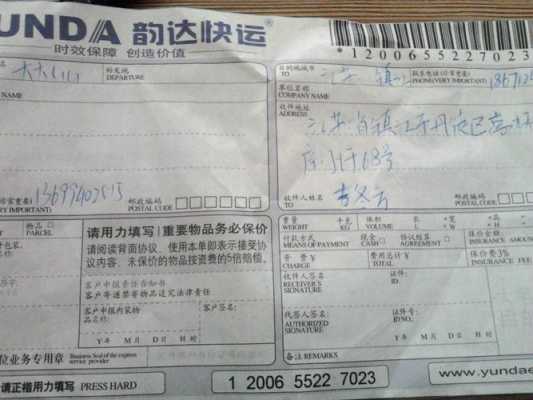 YUNDA 韵达快运
时效保障 创造价值
1200655227023
始发地
DEPARTURE
目的地城市
TO
江苏 镇江
联系电话(非常重要)
PHONE(VERY IMPORTANT)
NAME
单位名称
COMPANY NAME
收件地址
ADDRESS
江苏省镇江市丹徒区高桥
68号
(非常重要)
13699402515
VERY IMPORTANT)
邮政编码
POSTAL CODE
收件人姓名
TO
邮政编码
POSTAL CODE
物品
PARCEL
请用力填写 重要物品务必保价
请阅读背面协议, 使用本单即表示接受协
议内容。未保价的物品按资费的5倍赔偿。
客户申报责任告知书
客户寄递禁寄物品追究法律责任
客户申报内装物
品名:
客户签名:
Y年 M月 D日 H时
重量
WEIGHT
千克
KG
体积
VOLUME
长
L
宽
W
高
H
付款方式
MEANS OF PAYMENT
现金
CASH
协议结算
AGREEMENT
保价金额
INSURANCE AMOUN
资费 ¥
CHARGE
费用总计 ¥
TOTAL
保价费3%
INSURANCE FEE
收件人签名
RECEIVER'S
SIGNATURE
证件:
ID.
代签人签名
AUTHORIZED
SIGNATURE
证件号:
BY.NO.
Y年 M月 D日 H时
备注 REMARKS
位业务专用章
Business Seal of the express
service provider
请正楷用力填写 PRESS HARD
1 2006 5522 7023
www.yundae